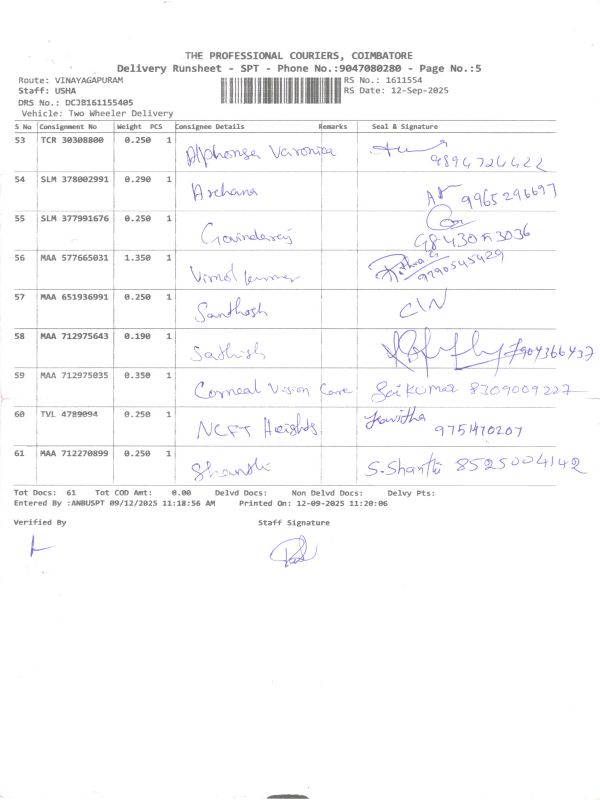 THE PROFESSIONAL COURIERS, COIMBATORE
Delivery Runsheet - SPT - Phone No.:9047080280 - Page No.:5
Route: VINAYAGAPURAM RS No.: 1611554
Staff: USHA RS Date: 12-Sep-2025
DRS No.: DCJB161155405
Vehicle: Two Wheeler Delivery
S No Consignment No Weight PCS Consignee Details Remarks Seal & Signature
53 TCR 30308800 0.250 1 Alphonsa Varonica
9894724422
54 SLM 378002991 0.290 1 Archana 9965296697
55 SLM 377991676 0.250 1 Govindaraj
56 MAA 577665031 1.350 1 Vimal kumar 9790545429
57 MAA 651936991 0.250 1 Santhosh
58 MAA 712975643 0.190 1 Sathish 7904366437
59 MAA 712975035 0.350 1 Corneal Vision Care Saikumar 8309009227
60 TVL 4789094 0.250 1 NCFT Heights Kavitha
9751470207
61 MAA 712270899 0.250 1 Shanthi S.Shanthi 8525004142
Tot Docs: 61 Tot COD Amt: 0.00 Delvd Docs: Non Delvd Docs: Delvy Pts:
Entered By :ANBUSPT 09/12/2025 11:18:56 AM Printed On: 12-09-2025 11:20:06
Verified By Staff Signature